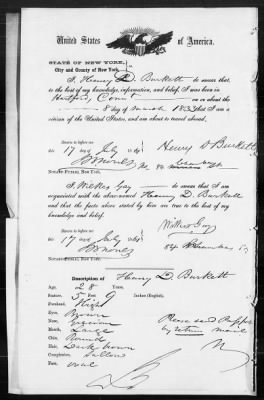 United States of America.
STATE OF NEW YORK,
City and County of New York.
I, Henry D. Burkett do swear, that
to the best of my knowledge, information, and belief, I was born in
Hartford Conn on or about the
8 day of March 1833 that I am a
citizen of the United States, and am about to travel abroad.
Sworn to before me
17 day July Henry D Burkett
No 84
NOTARY PUBLIC, New York.
I, Gay do swear that I am
acquainted with the above-named Henry D. Burkett
and that the facts above stated by him are true to the best of my
knowledge and belief.
Sworn to before me
17 day July Gay
84
NOTARY PUBLIC, New York.
Description of Henry D. Burkett
Age 28 Years.
Stature 5 Feet 9 Inches (English).
Forehead High
Eyes Brown
Nose
Mouth Large
Chin Round
Hair Dark brown
Complexion Sallow
Face oval
Please send Passport
by return mail